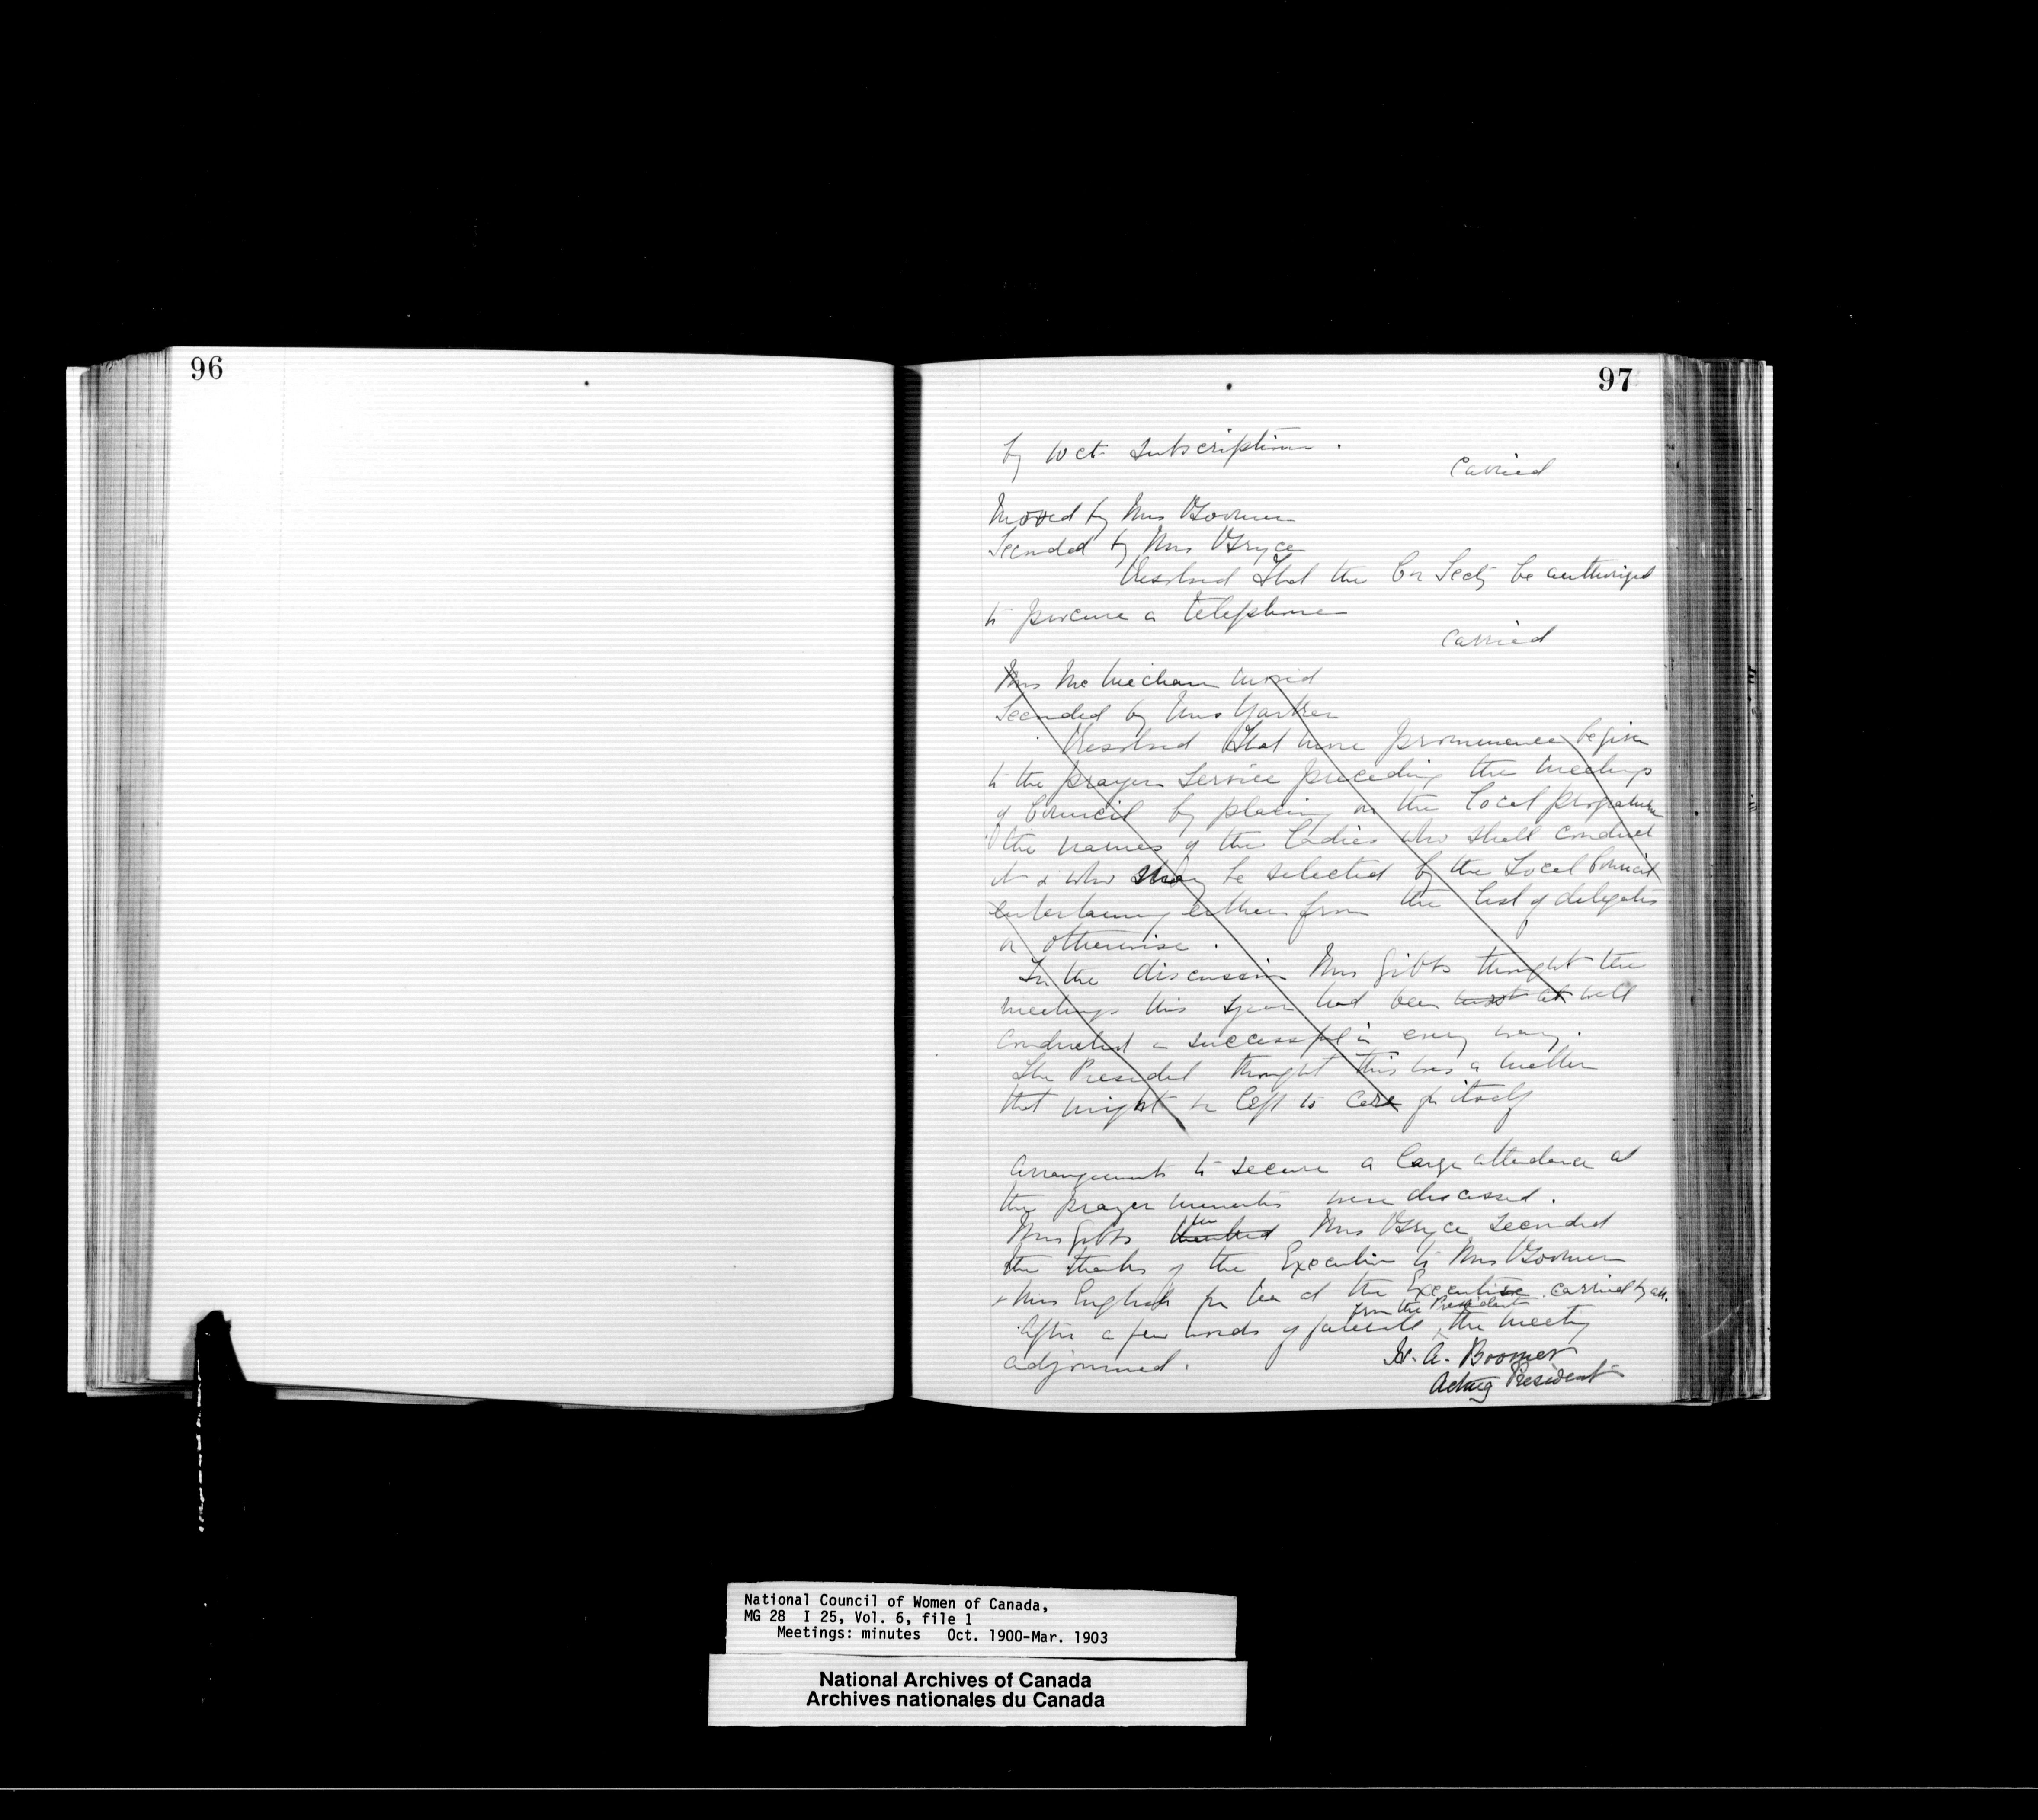 96
97
by 10 ct subscription.
Carried
Moved by Mrs Boomer
Seconded by Mrs Bryce
Resolved That the Cor Secty be authorized
to procure a telephone
Carried
Mrs McMechan moved
Seconded by Mrs Yarker
Resolved That more prominence be given
to the prayer service preceding the meetings
of Council by placing on the local programme
the names of the ladies who shall conduct
it & who may be selected by the Local Council
entertaining either from the list of delegates
or otherwise.
In the discussion Mrs Gibbs thought the
meetings this year had been well
conducted & successful in every way.
The President thought this was a matter
that might be left to care for itself
Arrangements to secure a large attendance at
the prayer minutes were discussed.
Mrs Gibbs Mrs Bryce seconded
the thanks of the Executive to Mrs Boomer
& Mrs English for tea at the Executive. carried by all.
from the President
After a few words of farewell the meeting
adjourned.
H. A. Boomer
Acting President
National Council of Women of Canada,
MG 28 I 25, Vol. 6, file 1
Meetings: minutes Oct. 1900-Mar. 1903
National Archives of Canada
Archives nationales du Canada